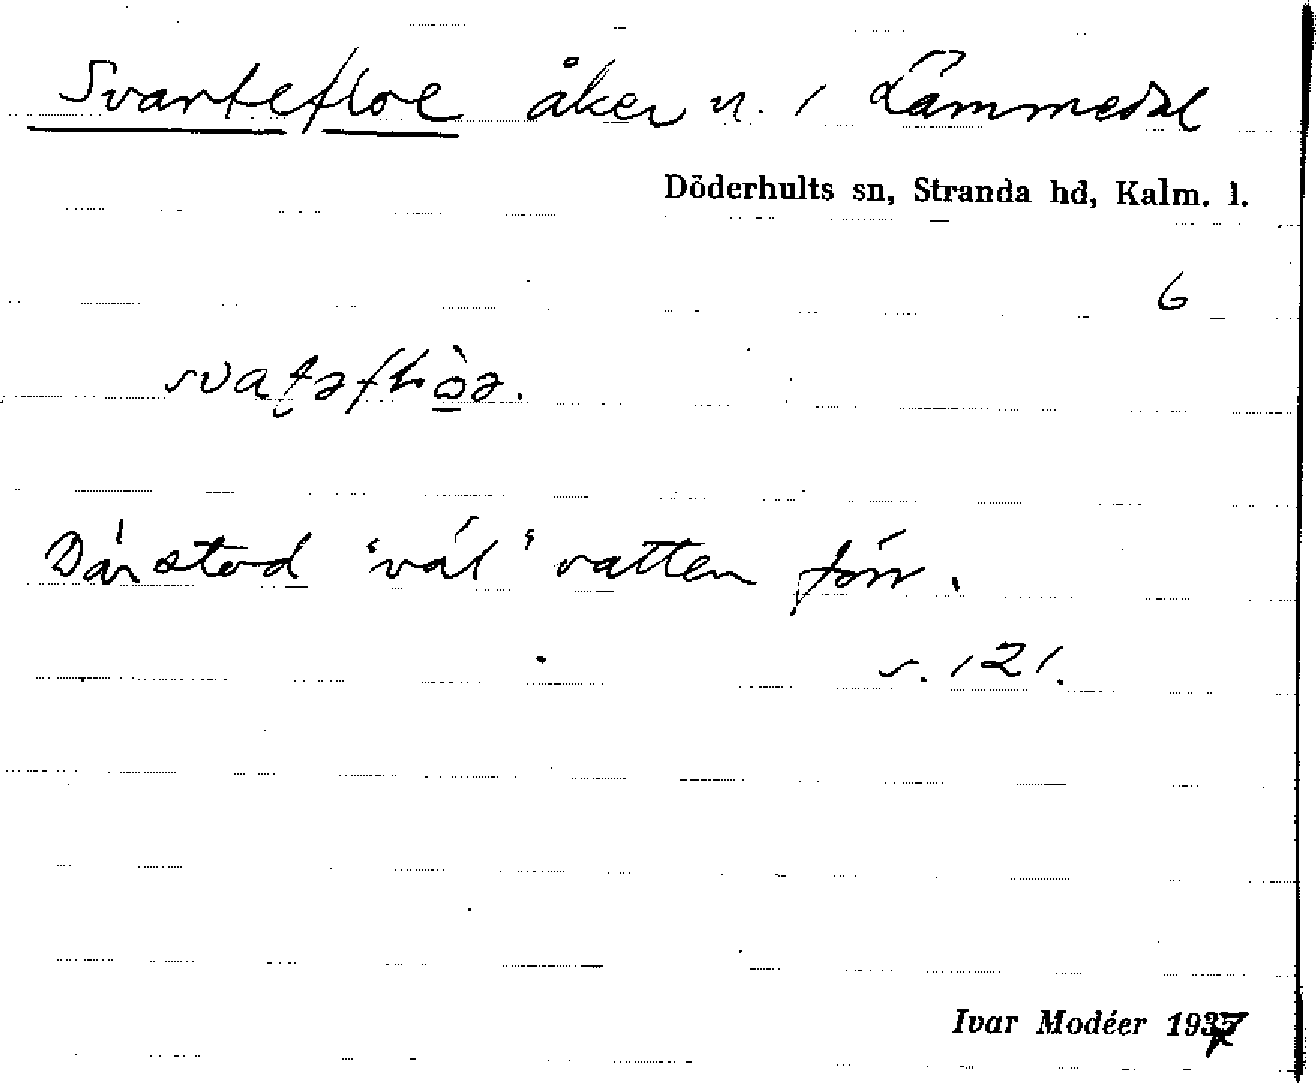 Svartefloe åker n. 1 Lämmedal
Döderhults sn, Stranda hd, Kalm. l.
6
Där stod 'väl' vatten förr.
s. 121.
Ivar Modéer 1937